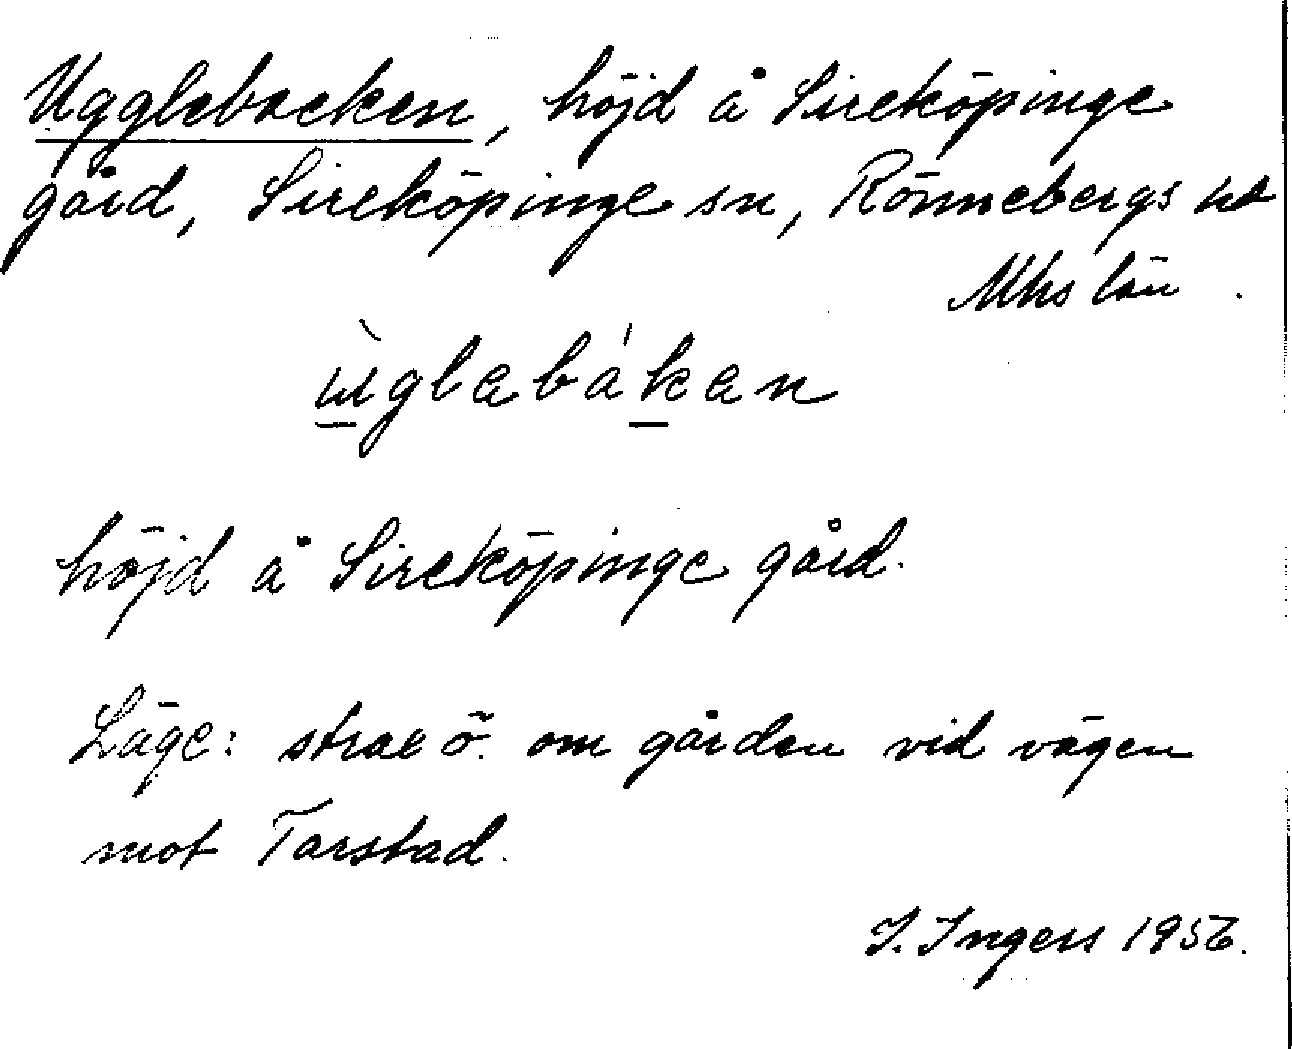 Ugglebacken, höjd å Sireköpinge
gård, Sireköpinge sn, Rönnebergs hd
Mhs län.
ùglabákan
höjd å Sireköpinge gård.
Läge: strax ö. om gården vid vägen
mot Tarstad.
I. Ingers 1956.